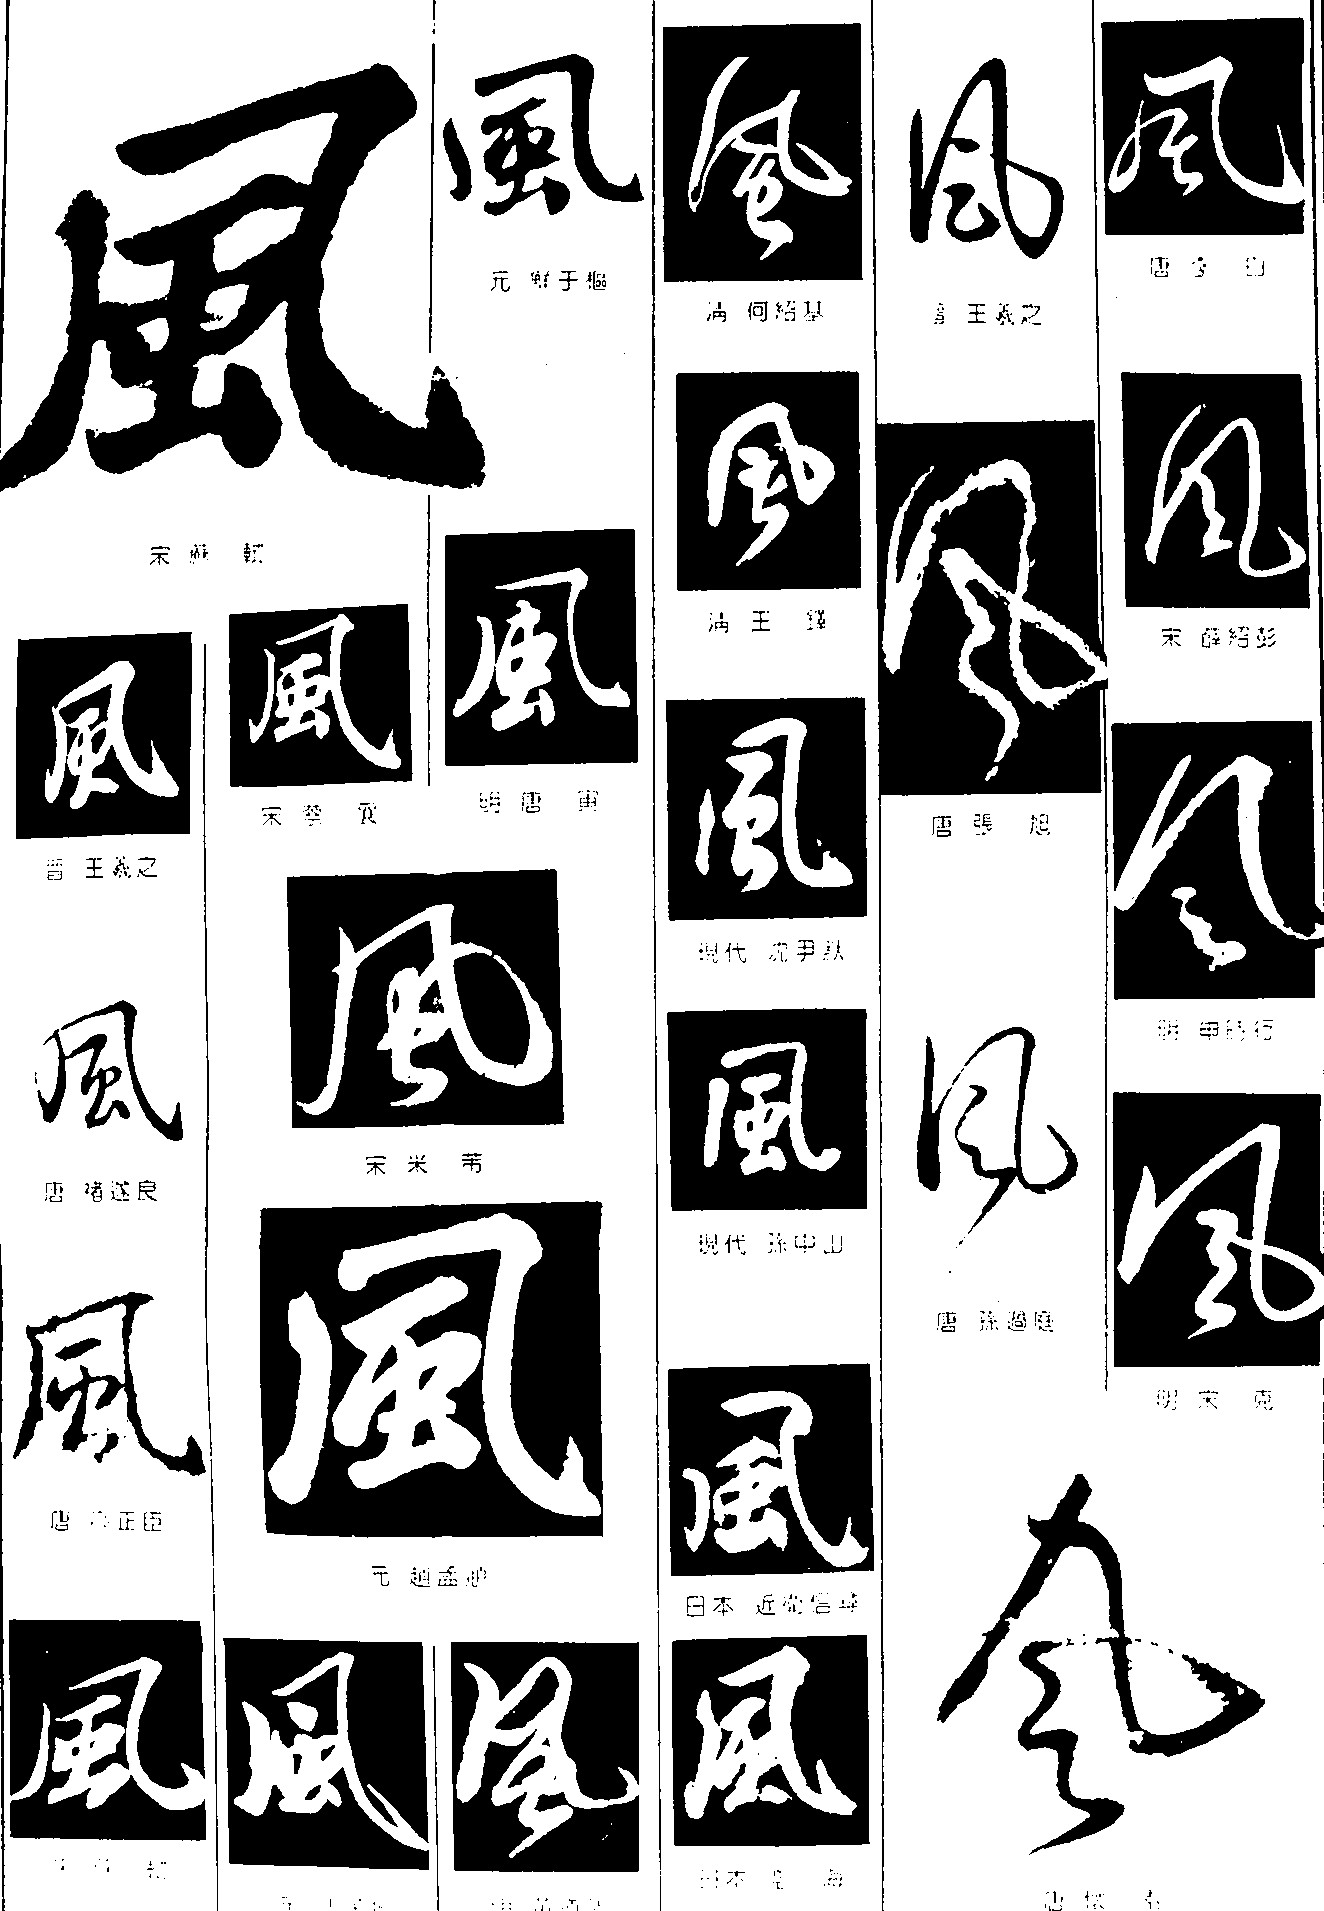 風
宋 蘇 軾
風
晉 王羲之
風
唐 褚遂良
風
正臣
風
風
元 鮮于樞
風
宋 蔡 襄
風
明 唐 寅
風
宋 米 芾
風
元 趙孟頫
風
風
風
清 何紹基
風
清 王 鐸
風
現代 沈尹默
風
現代 孫中山
風
日本 近衛信尋
風
日本 空 海
風
晉 王羲之
風
唐 張 旭
風
唐 孫過庭
風
唐 懷 素
風
唐 李 白
風
宋 薛紹彭
風
明 申時行
風
明 宋 克